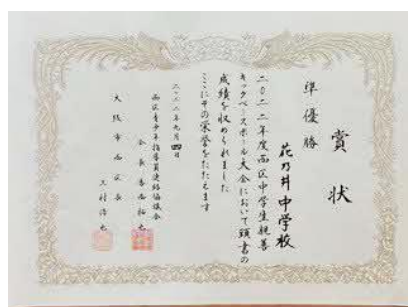 賞状
準優勝
花乃井中学校
二〇二二年度西区中学生親善
キックベースボール大会において頭書の
成績を収められました
ここにその栄誉をたたえます
二〇二二年九月四日
西区青少年指導員連絡協議会
会長
大阪市西区長